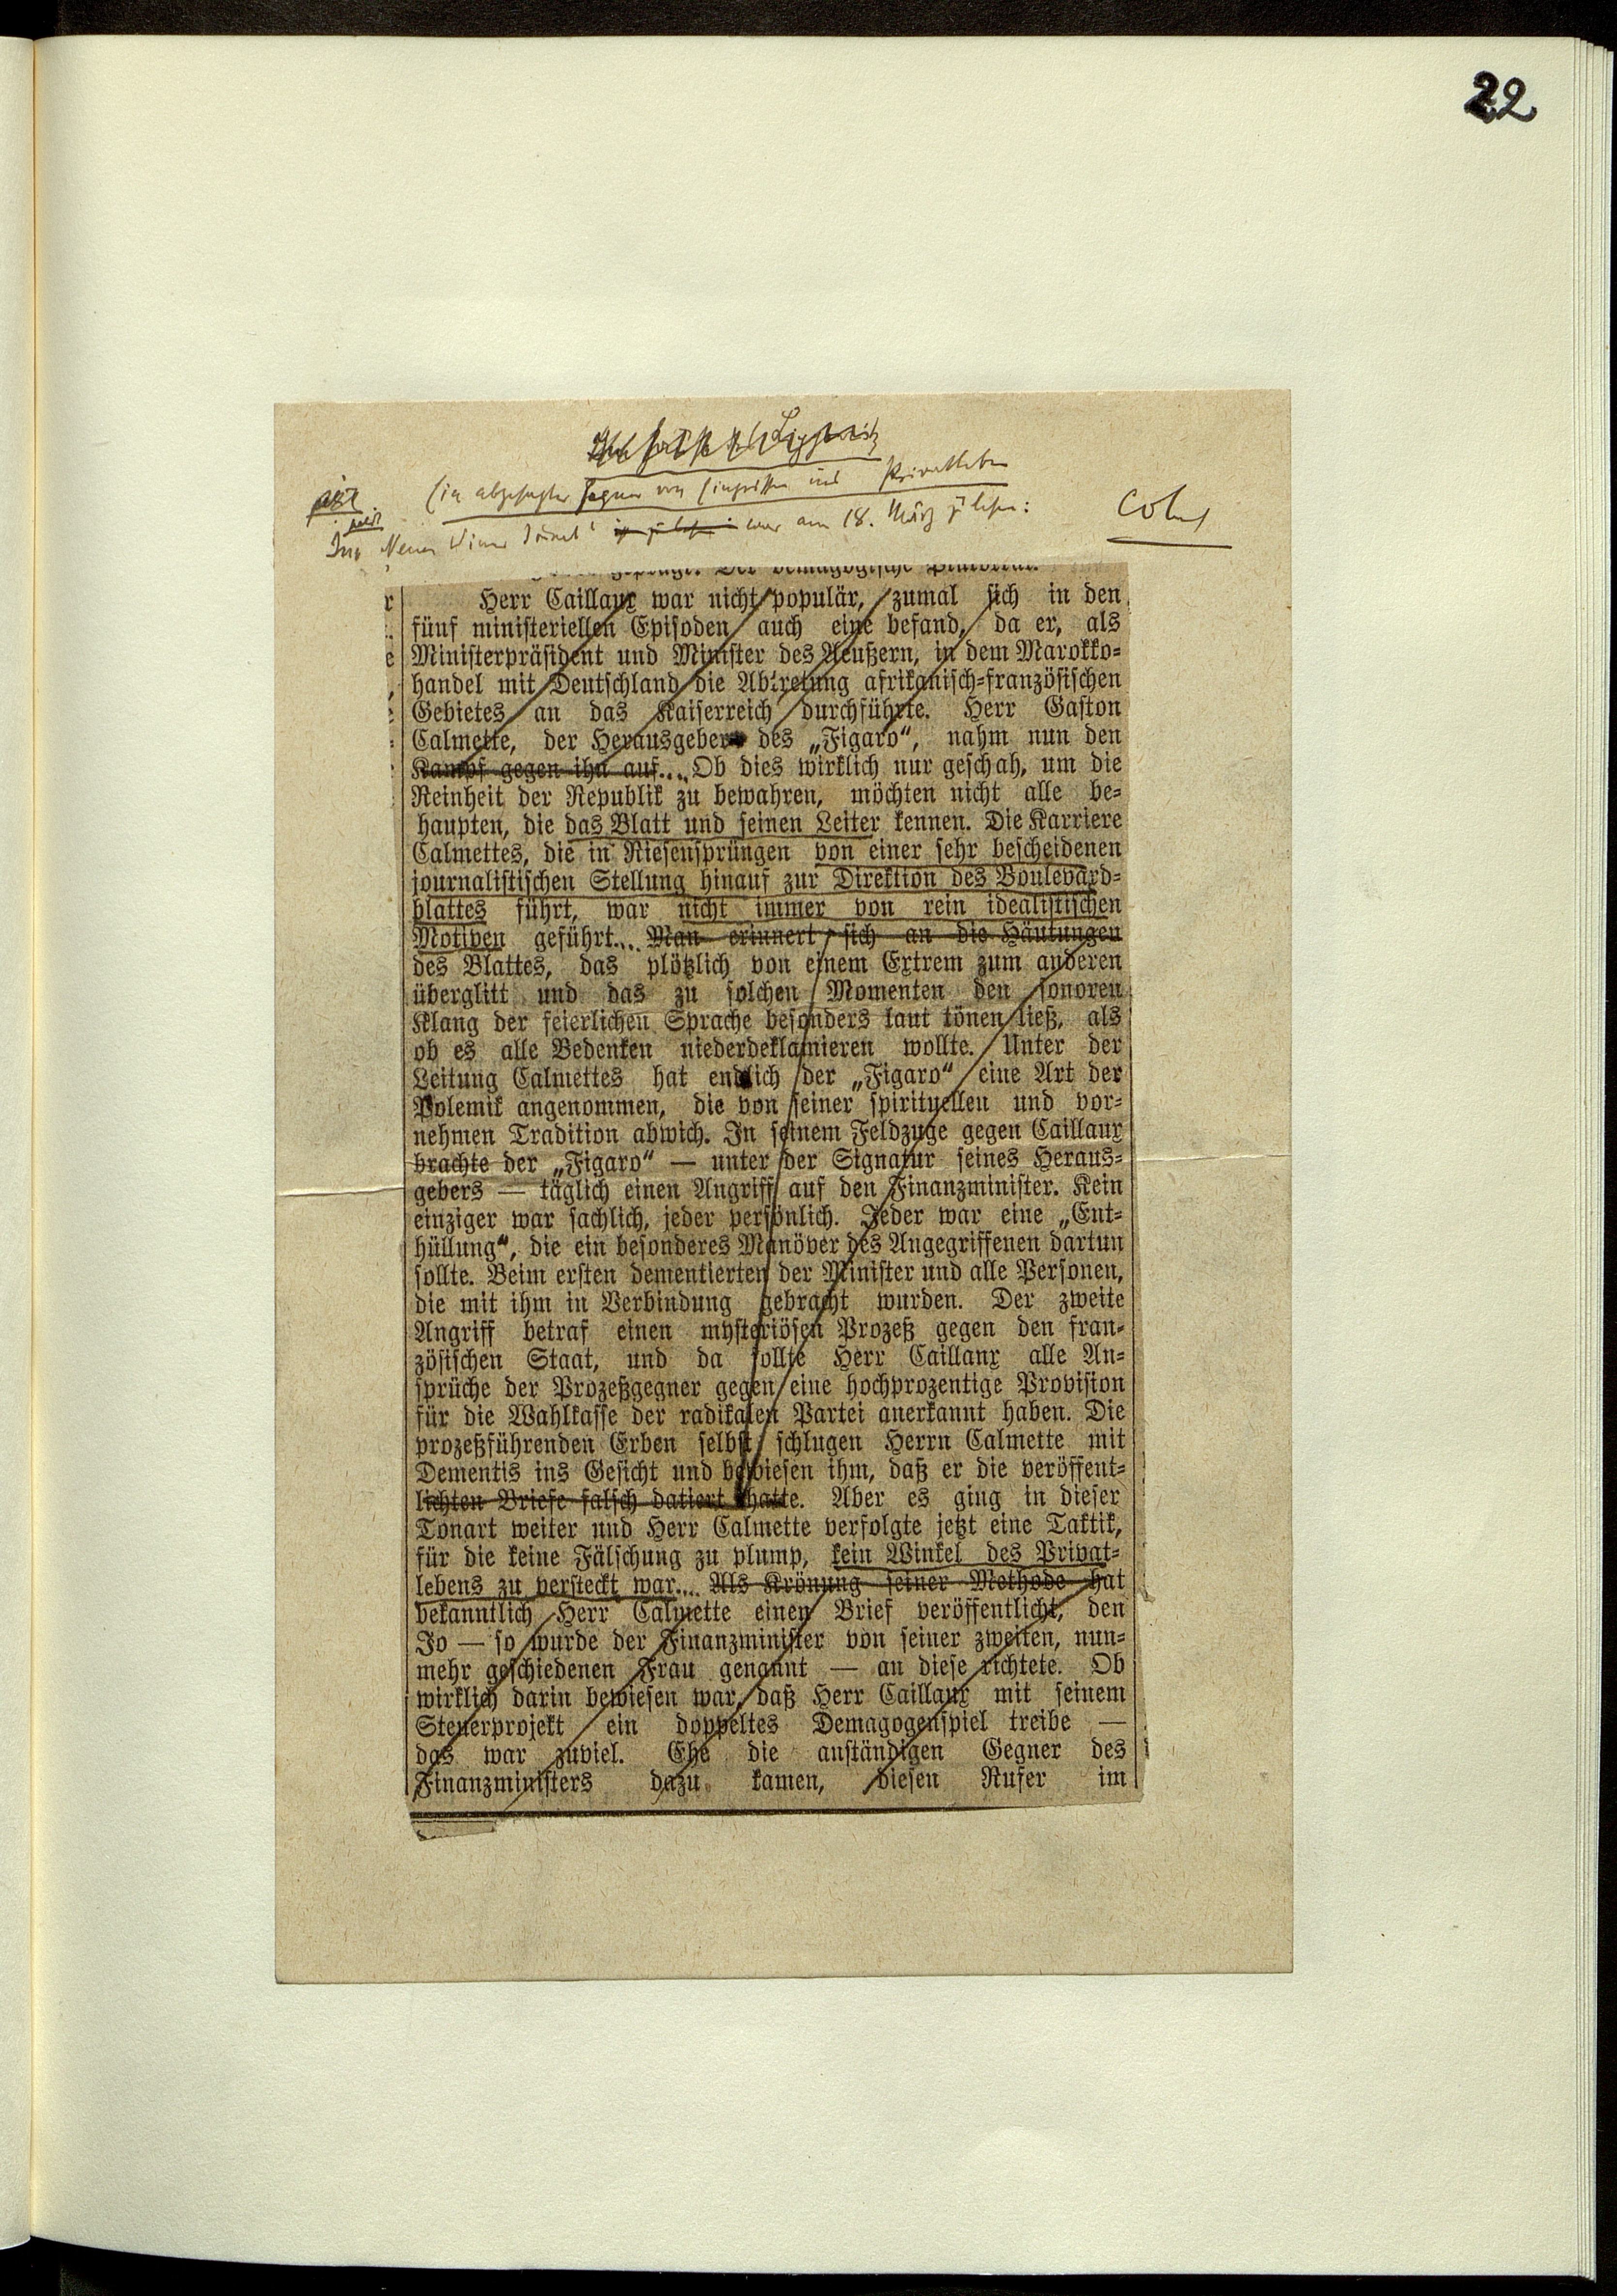 22
Ein abgesagter Gegner von Eingriffen ins Privatleben
Im Neuen Wiener Journal war am 18. März zu lesen:
Herr Caillaux war nicht populär, zumal sich in den
fünf ministeriellen Episoden auch eine befand, da er, als
Ministerpräsident und Minister des Aeußern, in dem Marokko-
handel mit Deutschland die Abtretung afrikanisch-französischen
Gebietes an das Kaiserreich durchführte. Herr Gaston
Calmette, der Herausgeber des „Figaro“, nahm nun den
Kampf gegen ihn auf.... Ob dies wirklich nur geschah, um die
Reinheit der Republik zu bewahren, möchten nicht alle be-
haupten, die das Blatt und seinen Leiter kennen. Die Karriere
Calmettes, die in Riesensprüngen von einer sehr bescheidenen
journalistischen Stellung hinauf zur Direktion des Boulevard-
blattes führt, war nicht immer von rein idealistischen
Motiven geführt... Man erinnert sich an die Häutungen
des Blattes, das plötzlich von einem Extrem zum anderen
überglitt und das zu solchen Momenten den sonoren
Klang der feierlichen Sprache besonders laut tönen ließ, als
ob es alle Bedenken niederdeklamieren wollte. Unter der
Leitung Calmettes hat endlich der „Figaro“ eine Art der
Polemik angenommen, die von seiner spirituellen und vor-
nehmen Tradition abwich. In seinem Feldzuge gegen Caillaux
brachte der „Figaro“ — unter der Signatur seines Heraus-
gebers — täglich einen Angriff auf den Finanzminister. Kein
einziger war sachlich, jeder persönlich. Jeder war eine „Ent-
hüllung“, die ein besonderes Manöver des Angegriffenen dartun
sollte. Beim ersten dementierten der Minister und alle Personen,
die mit ihm in Verbindung gebracht wurden. Der zweite
Angriff betraf einen mysteriösen Prozeß gegen den fran-
zösischen Staat, und da sollte Herr Caillaux alle An-
sprüche der Prozeßgegner gegen eine hochprozentige Provision
für die Wahlkasse der radikalen Partei anerkannt haben. Die
prozeßführenden Erben selbst schlugen Herrn Calmette mit
Dementis ins Gesicht und bewiesen ihm, daß er die veröffent-
lichten Briefe falsch datiert hatte. Aber es ging in dieser
Tonart weiter und Herr Calmette verfolgte jetzt eine Taktik,
für die keine Fälschung zu plump, kein Winkel des Privat-
lebens zu versteckt war.... Als Krönung seiner Methode hat
bekanntlich Herr Calmette einen Brief veröffentlicht, den
Jo — so wurde der Finanzminister von seiner zweiten, nun-
mehr geschiedenen Frau genannt — an diese richtete. Ob
wirklich darin bewiesen war, daß Herr Caillaux mit seinem
Steuerprojekt ein doppeltes Demagogenspiel treibe —
das war zuviel. Ehe die anständigen Gegner des
Finanzministers dazu kamen, diesen Rufer im